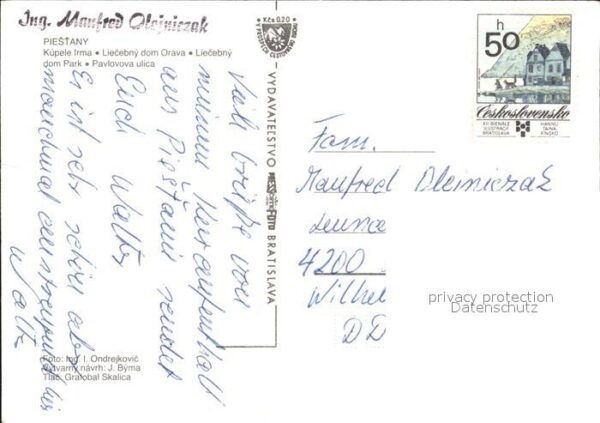 Ing. Manfred Olejniczak
PIEŠŤANY
Kúpele Irma • Liečebný dom Orava • Liečebný
dom Park • Pavlovova ulica
Kčs 0,20
VYDAVATEĽSTVO PRESSFOTO BRATISLAVA
Viele Grüße von
meinem Kuraufenthalt
aus Piešťani sendet
Euch Walter
Es ist sehr schön aber
manchmal anstrengend
Walter
Foto: Ing. I. Ondrejkovič
Výtvarný návrh: J. Býma
Tlač: Grafobal Skalica
50 h
Československo
XI. BIENÁLE
ILUSTRÁCIÍ
BRATISLAVA
HANNU
TAINA
FÍNSKO
Fam.
Manfred Olejniczak
Leuna
4200
Wilhel
DD
privacy protection
Datenschutz